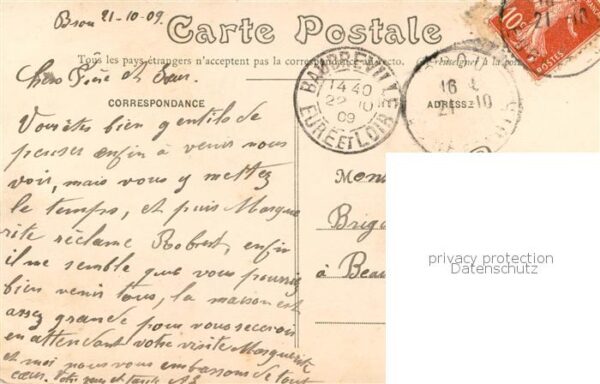 21-10-09
Carte Postale
Tous les pays étrangers n'acceptent pas la correspondance au recto.
à la poste
10c
POSTES
21 10
Chers Frère et
CORRESPONDANCE
ADRESSE
BAUDREVILLE
14 40
22 10
09
EURE ET LOIR
16
21 10
Vous êtes bien gentils de
penser enfin à venir nous
voir, mais vous y mettez
le temps, et puis Margue
rite réclame Robert, enfin
il me semble que vous pourriez
bien venir tous, la maison est
assez grande pour vous recevoir
en attendant votre visite Marguerite
et moi nous vous embrassons de tout
cœur. Votre et tante
Brig
à Beau
privacy protection
Datenschutz